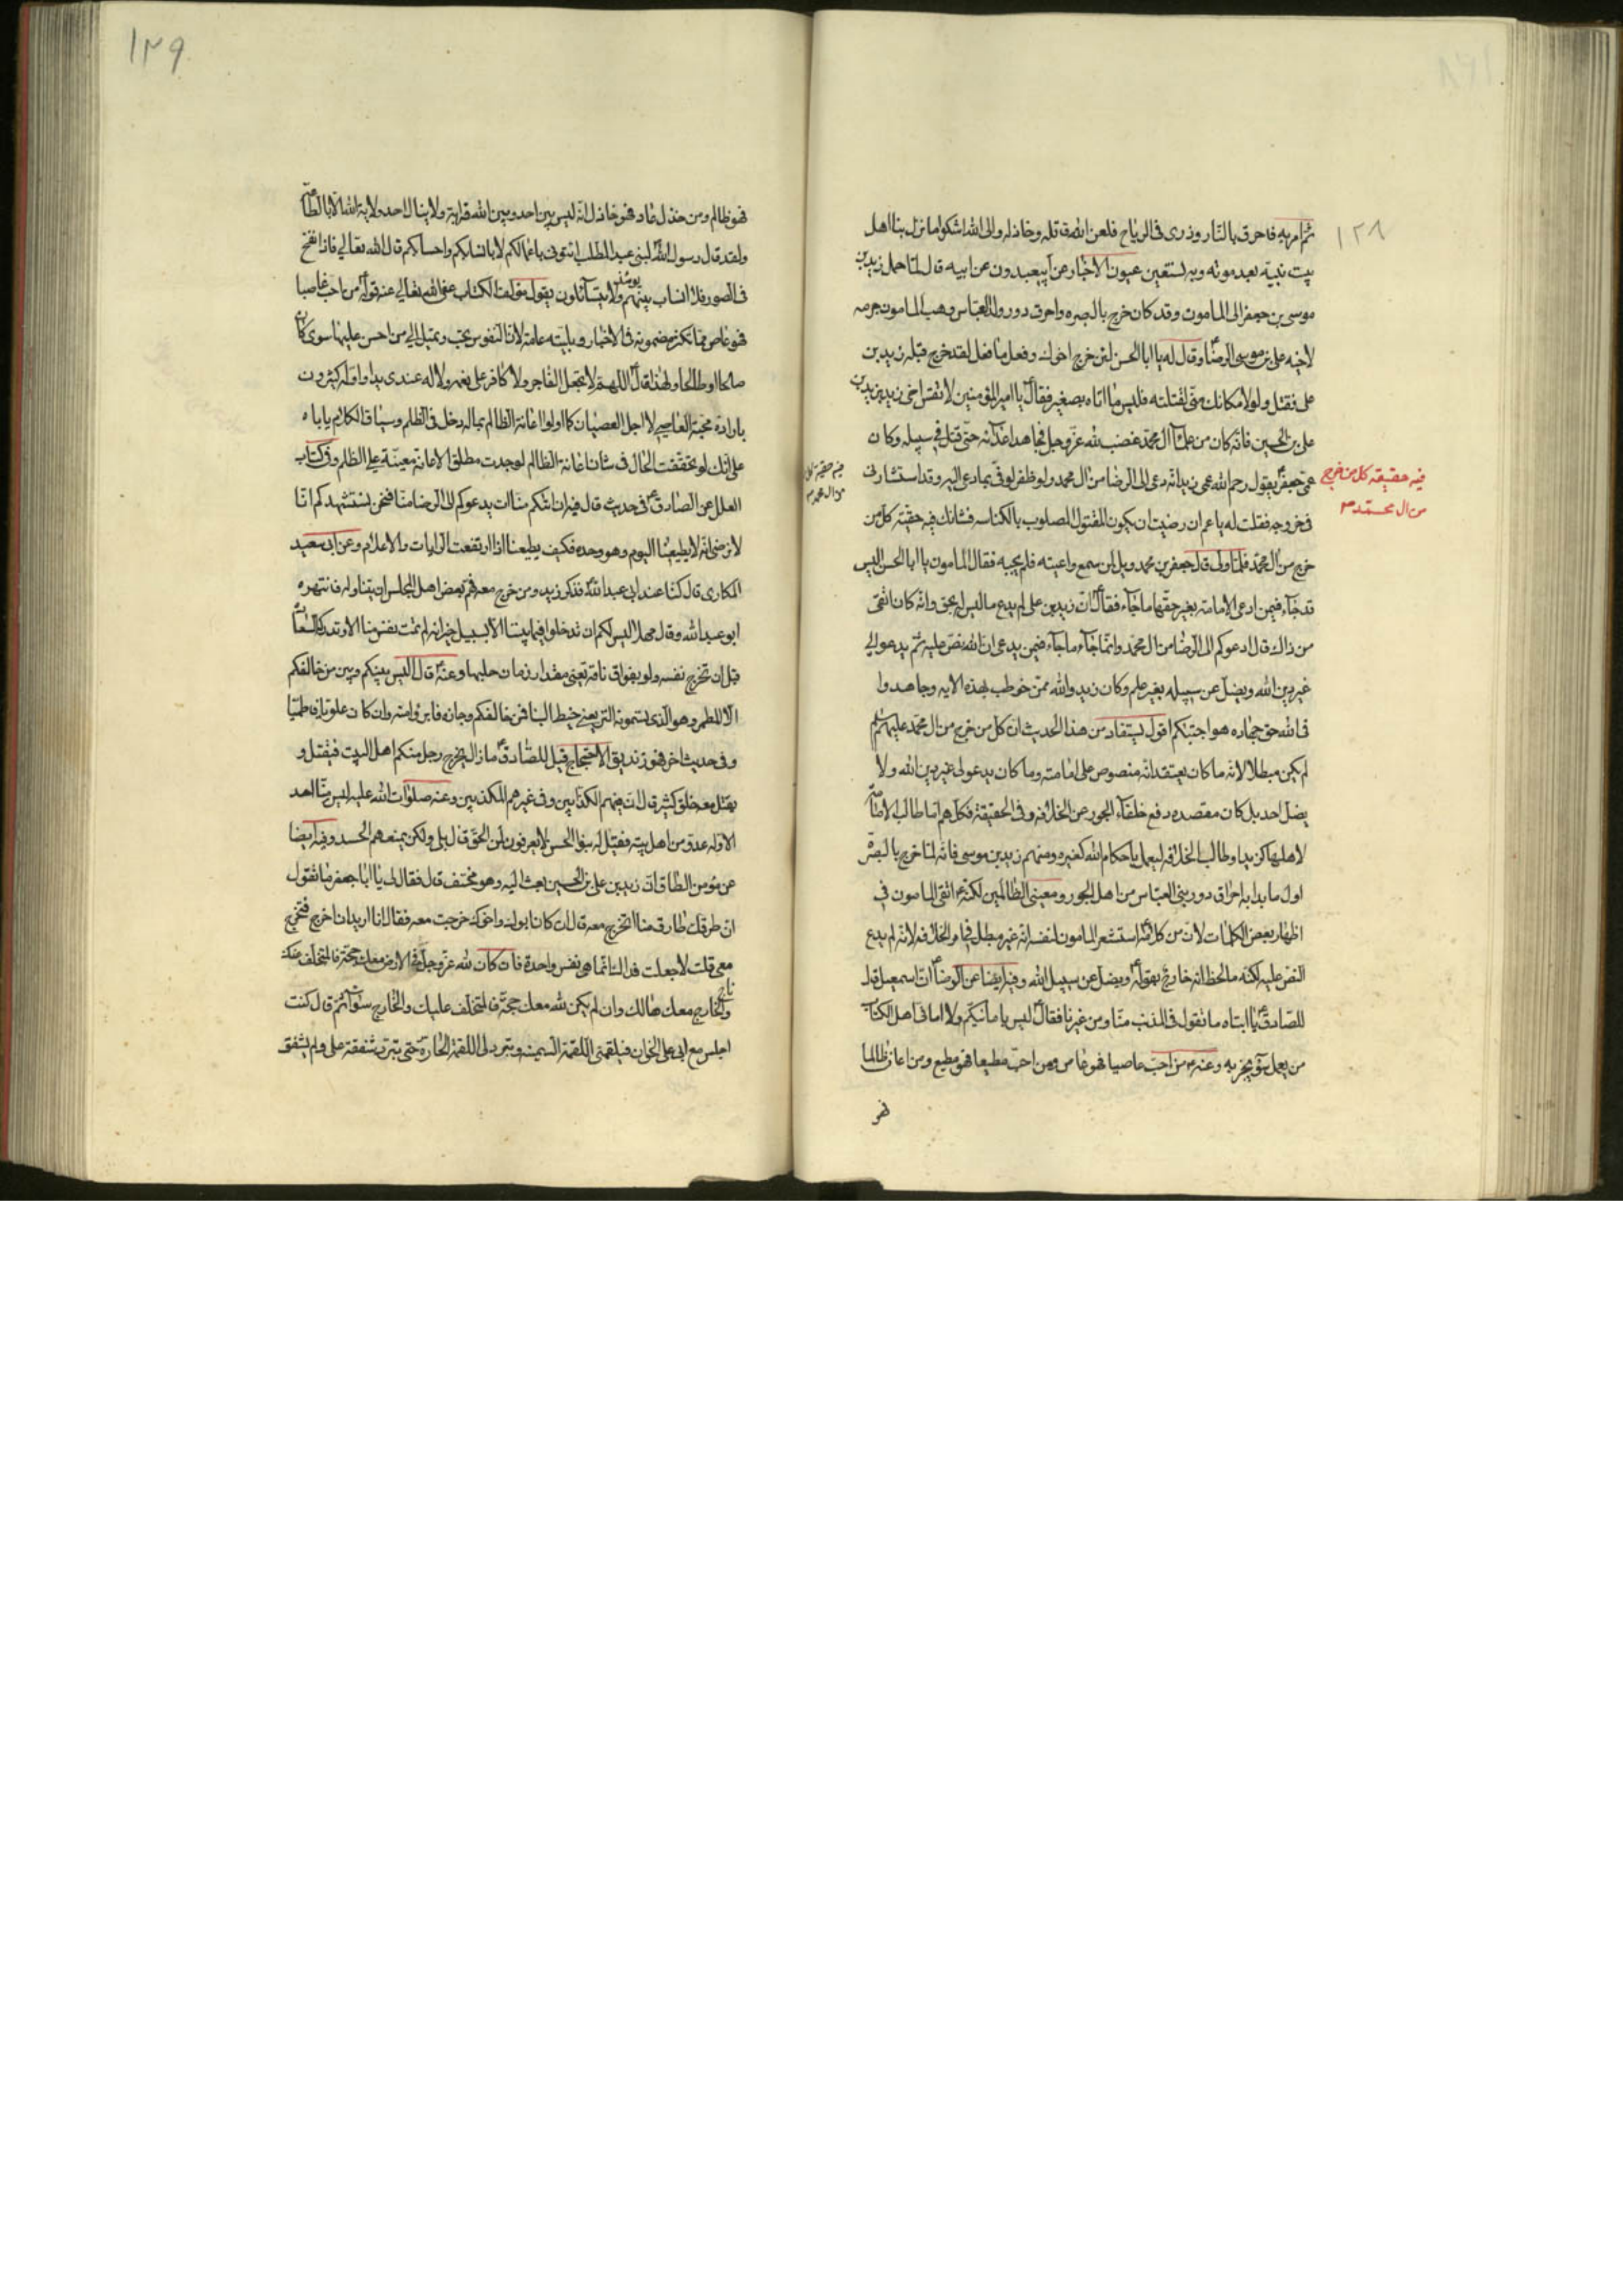 ١٢٨
ثم امر به فاحرق بالنار وذرى فى الرياح فلعن الله قاتله وخاذله والى الله اشكو ما نزل بنا اهل
بيت نبيه بعد موته وبه نستعين عيون الاخبار عن ابن عبدون عن ابيه قال لما حمل زيد بن
موسى بن جعفر الى المامون وقد كان خرج بالبصره واحرق دور ولد العباس وهب المامون جرمه
لاخيه على بن موسى الرضا وقال له يا ابا الحسن لئن خرج اخوك وفعل ما فعل لقد خرج قبله زيد بن
على فقتل ولولا مكانك منى لقتلته فليس ما اتاه بصغير فقال يا امير المؤمنين لا تقس اخى زيد بزيد بن
على بن الحسين فانه كان من علماء ال محمد غضب لله عز وجل فجاهد اعدائه حتى قتل فى سبيله وكان
عمى جعفر يقول رحم الله عمى زيد انه دعى الى الرضا من ال محمد ولو ظفر لوفى بما دعى اليه وقد استشارنى
فى خروجه فقلت له يا عم ان رضيت ان يكون المقتول المصلوب بالكناسه فشانك فيه حقيقة كل من
خرج من ال محمد فلما ولى قال جعفر بن محمد ويل لمن سمع واعيته فلم يجبه فقال المامون يا ابا الحسن اليس
قد جاء فيمن ادعى الامامة بغير حقها ما جاء فقال ان زيد بن على لم يدع ما ليس له بحق وانه كان اتقى
من ذاك قال ادعوكم الى الرضا من ال محمد وانما جاء ما جاء فيمن يدعى ان الله نص عليه ثم يدعو الى
غير دين الله ويضل عن سبيله بغير علم وكان زيد والله ممن خوطب بهذه الايه وجاهدوا
فى الله حق جهاده هو اجتبيكم اقول يستفاد من هذا الحديث ان كل من خرج من ال محمد عليهم السلم
لم يكن مبطلا لانه ما كان يعتقد انه منصوص على امامته وما كان يدعو لى غير دين الله ولا
يضل احد بل كان مقصده دفع خلفاء الجور عن الخلافه وفى الحقيقة فكلهم اما طالب الامامة
لاهلها كزيد او طالب الخلافه ليعمل باحكام الله كغيره ومنهم زيد بن موسى فانه لما خرج بالبصرة
اول ما بدا به احراق دور بنى العباس من اهل الجور ومعينى الظالمين لكنه ع اتقى المامون فى
اظهار بعض الكلمات لان من كلامه استشعر المامون لنفسه انه غير مبطل فى امر الخلافه لانه لم يدع
النص عليه لكنه ما لحظ انه خارج بقوله ويضل عن سبيل الله وفيه ايضا عن الرضا ان اسمعيل قال
للصادق يا ابتاه ما تقول فى المذنب منا ومن غيرنا فقال ليس بامانيكم ولا امانى اهل الكتاب
من يعمل سوء يجز به وعنه ع من احب عاصيا فهو عاص ومن احب مطيعا فهو مطيع ومن اعان ظالما
فهو
فيه حقيقة كل من خرج
من ال محمد م
١٢٩
فهو ظالم ومن خذل عاد فهو خاذل انه ليس بين احد وبين الله قرابة ولا ينال احد ولاية الله الا بالطاعة
ولقد قال رسول الله لبنى عبد المطلب ائتونى باعمالكم لا بانسابكم واحسابكم قال الله تعالى فاذا نفخ
فى الصور فلا انساب بينهم يومئذ ولا يتسائلون يقول مؤلف الكتاب عفى الله تعالى عنه قوله من احب عاصيا
فهو عاص مما تكرر مضمونه فى الاخبار وبليته عامة لان النفوس تحب وتميل الى من احسن عليها سوى كان
صالحا او طالحا ولهذا قال اللهم لا تجعل لفاجر ولا كافر على نعمه ولا له عندى يدا واوله كثيرون
بارادة محبة العاصى لاجل العصيان كما اولوا اعانة الظالم بماله دخل فى الظلم وسياق الكلام ياباه
على انك لو تحققت الحال فى شان اعانة الظالم لوجدت مطلق الاعانة معينة على الظلم وفى كتاب
العلل عن الصادق فى حديث قال فيه ان اتيكم منا ات يدعوكم الى الرضا منا فنحن نستشهدكم انا
لا نرضى انه لا يطيعنا اليوم وهو وحده فكيف يطيعنا اذا ارتفعت الرايات والاعلام وعن ابى سعيد
المكارى قال كنا عند ابى عبد الله فذكر زيد ومن خرج معه فهم بعض اهل المجلس ان يتناوله فانتهره
ابو عبد الله وقال مهلا ليس لكم ان تدخلوا فيما بيننا الا بسبيل خير انه لم تمت نفس منا الا وتدركه السعادة
قبل ان تخرج نفسه ولو بفواق ناقة يعنى مقدار زمان حلبها وعنه قال ليس بينكم وبين من خالفكم
الا المطمر وهو الذى يسمونه التر يعنى خيط البنا فمن خالفكم وجازه فابرؤا منه وان كان علويا فاطميا
وفى حديث اخر فهو زنديق الاحتجاج قيل للصادق ما زال يخرج رجل منكم اهل البيت فيقتل و
يقتل معه خلق كثير قال ان فيهم الكذابين وفى غيرهم المكذبين وعنه صلوات الله عليه ليس منا احد
الا وله عدو من اهل بيته فقيل له بنو الحسن لا يعرفون لمن الحق قال بلى ولكن يمنعهم الحسد وفيه ايضا
عن مؤمن الطاق ان زيد بن على بن الحسين بعث اليه وهو مختف قال فقال لى يا ابا جعفر ما تقول
ان طرقك طارق منا اتخرج معه قال ان كان ابوك واخوك خرجت معه فقال انا اريد ان اخرج فتخرج
معى قلت لا جعلت فداك انما هى نفس واحدة فان كان لله عز وجل فى الارض معك حجة فالمتخلف عنك
ناج والخارج معك هالك وان لم يكن لله معك حجة فالمتخلف عليك والخارج سواء ثم قال كنت
اجلس مع ابى على الخوان فيلقمنى اللقمة السمينه ويبرد لى اللقمة الحارة حتى تبرد شفقة على ولم يشفق
فيه حقيقة كل
من ال محمد م